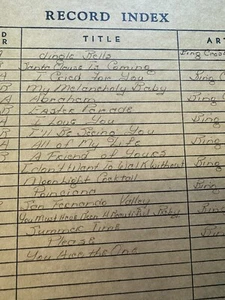 RECORD INDEX
TITLE ART
Jingle Bells Bing Crosb
Santa Clause is Coming
I Cried for You Bing
My Melancholy Baby
Abraham Bing
Easter Parade
I Love You Bing
I'll Be Seeing You
All of My Life Bing
A Friend of Yours
I don't Want to Walk Without Bing
Moon Light Cocktail
Poinciana Bing
San Fernando Valley
You Must Have Been A Beautiful Baby Bing
Summer Time
Please Bing
You Are the One